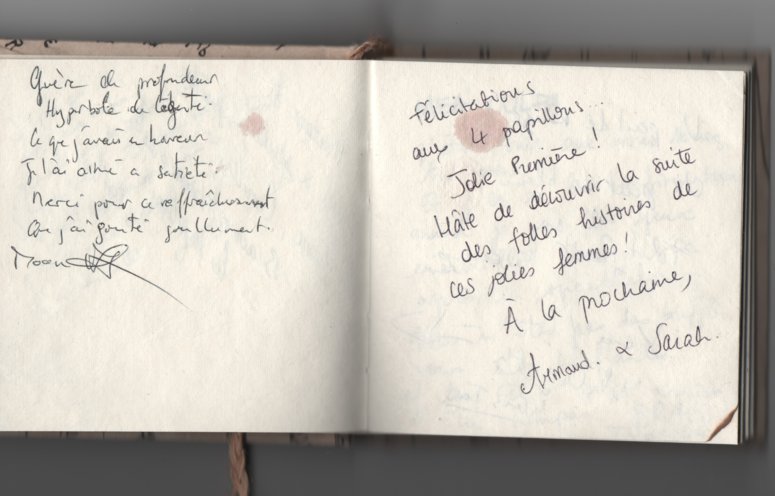 Guère de profondeur
Hyperbole de légèreté.
Ce que j'avais en horreur
Je l'ai aimé à satiété.
Merci pour ce raffraîchissement
Que j'ai goûté goulûment.
Félicitations
aux 4 papillons...
Jolie Première !
Hâte de découvrir la suite
des folles histoires de
ces jolies femmes !
À la prochaine,
Armand. & Sarah.